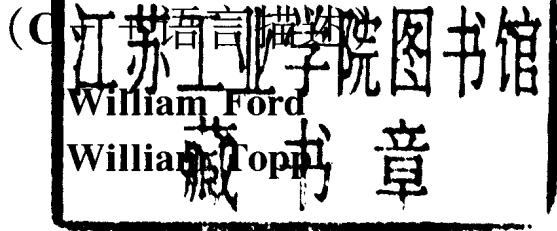 （C++语言描述）
江苏工业学院图书馆
William Ford
William Topp
藏书章